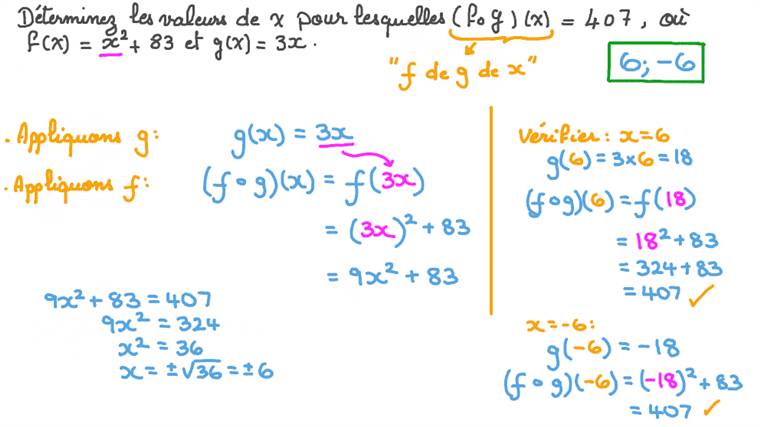 Déterminez les valeurs de x pour lesquelles (f∘g)(x) = 407, où
f(x) = x² + 83 et g(x) = 3x.
"f de g de x"
6; -6
. Appliquons g:
g(x) = 3x
. Appliquons f:
(f∘g)(x) = f(3x)
= (3x)² + 83
= 9x² + 83
9x² + 83 = 407
9x² = 324
x² = 36
x = ±√36 = ±6
Vérifier: x = 6
g(6) = 3×6 = 18
(f∘g)(6) = f(18)
= 18² + 83
= 324 + 83
= 407 ✓
x = -6:
g(-6) = -18
(f∘g)(-6) = (-18)² + 83
= 407 ✓